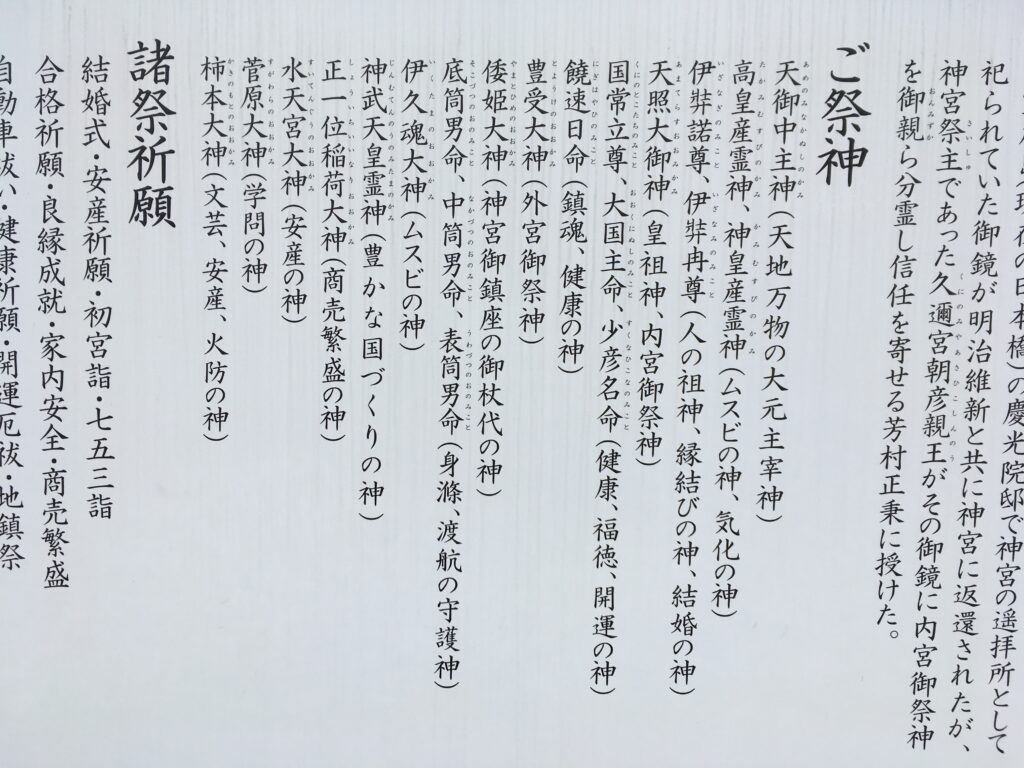 祀られていた御鏡が明治維新と共に神宮に返還されたが、
神宮祭主であった久邇宮朝彦親王がその御鏡に内宮御祭神
を御親ら分霊し信任を寄せる芳村正秉に授けた。
ご祭神
天御中主神(天地万物の大元主宰神)
高皇産霊神、神皇産霊神(ムスビの神、気化の神)
伊弉諾尊、伊弉冉尊(人の祖神、縁結びの神、結婚の神)
天照大御神(皇祖神、内宮御祭神)
国常立尊、大国主命、少彦名命(健康、福徳、開運の神)
饒速日命(鎮魂、健康の神)
豊受大神(外宮御祭神)
倭姫大神(神宮御鎮座の御杖代の神)
底筒男命、中筒男命、表筒男命(身滌、渡航の守護神)
伊久魂大神(ムスビの神)
神武天皇霊神(豊かな国づくりの神)
正一位稲荷大神(商売繁盛の神)
水天宮大神(安産の神)
菅原大神(学問の神)
柿本大神(文芸、安産、火防の神)
諸祭祈願
結婚式・安産祈願・初宮詣・七五三詣
合格祈願・良縁成就・家内安全・商売繁盛
自動車祓い・健康祈願・開運厄祓・地鎮祭